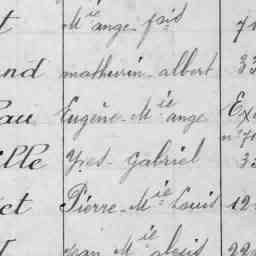 t Mie ange fois 71
and mathurin albert 33
au Eugène Mie ange Exe
ille Yves Gabriel 33
et Pierre Mie Louis 12
Jean Mie alexis 22